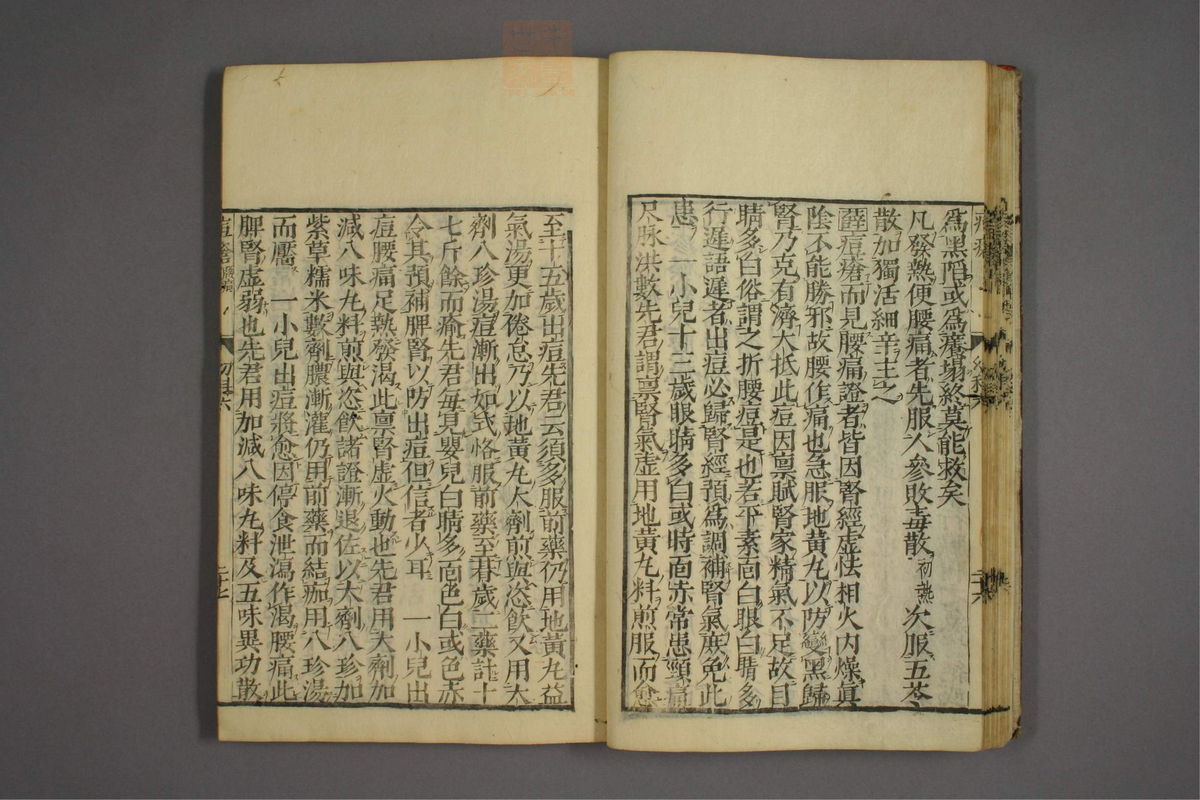 爲黑陷或爲癢塌終莫能救矣
凡發熱便腰痛者先服人參敗毒散初熱次服五苓
散加獨活細辛主之
薛痘瘡而見腰痛證者皆因腎經虛怯相火内燥眞
陰不能勝邪故腰作痛也急服地黃丸以防變黑歸
腎乃克有濟大抵此痘因禀賦腎家精氣不足故目
睛多白俗謂之折腰痘是也若平素面白眼白睛多
行遲語遲者出痘必歸腎經預爲調補腎氣庶免此
患 一小兒十三歲眼睛多白或時面赤常患頭痛
尺脉洪數先君謂禀腎氣虛用地黃丸料煎服而愈
至十五歲出痘先君云須多服前藥仍用地黃丸益
氣湯更加倦怠乃以地黃丸大劑煎與恣飲又用大
劑八珍湯痘漸出如式恪服前藥至朞歲二藥計十
七斤餘而瘉先君每見嬰兒白睛多面色白或色赤
令其預補脾腎以防出痘但信者少耳 一小兒出
痘腰痛足熱發渴此禀腎虛火動也先君用大劑加
減八味丸料煎與恣飲諸證漸退佐以大劑八珍加
紫草糯米數劑膿漸灌仍用前藥而結痂用八珍湯
而靨 一小兒出痘將愈因停食泄瀉作渴腰痛此
脾腎虛弱也先君用加減八味丸料及五味異功散